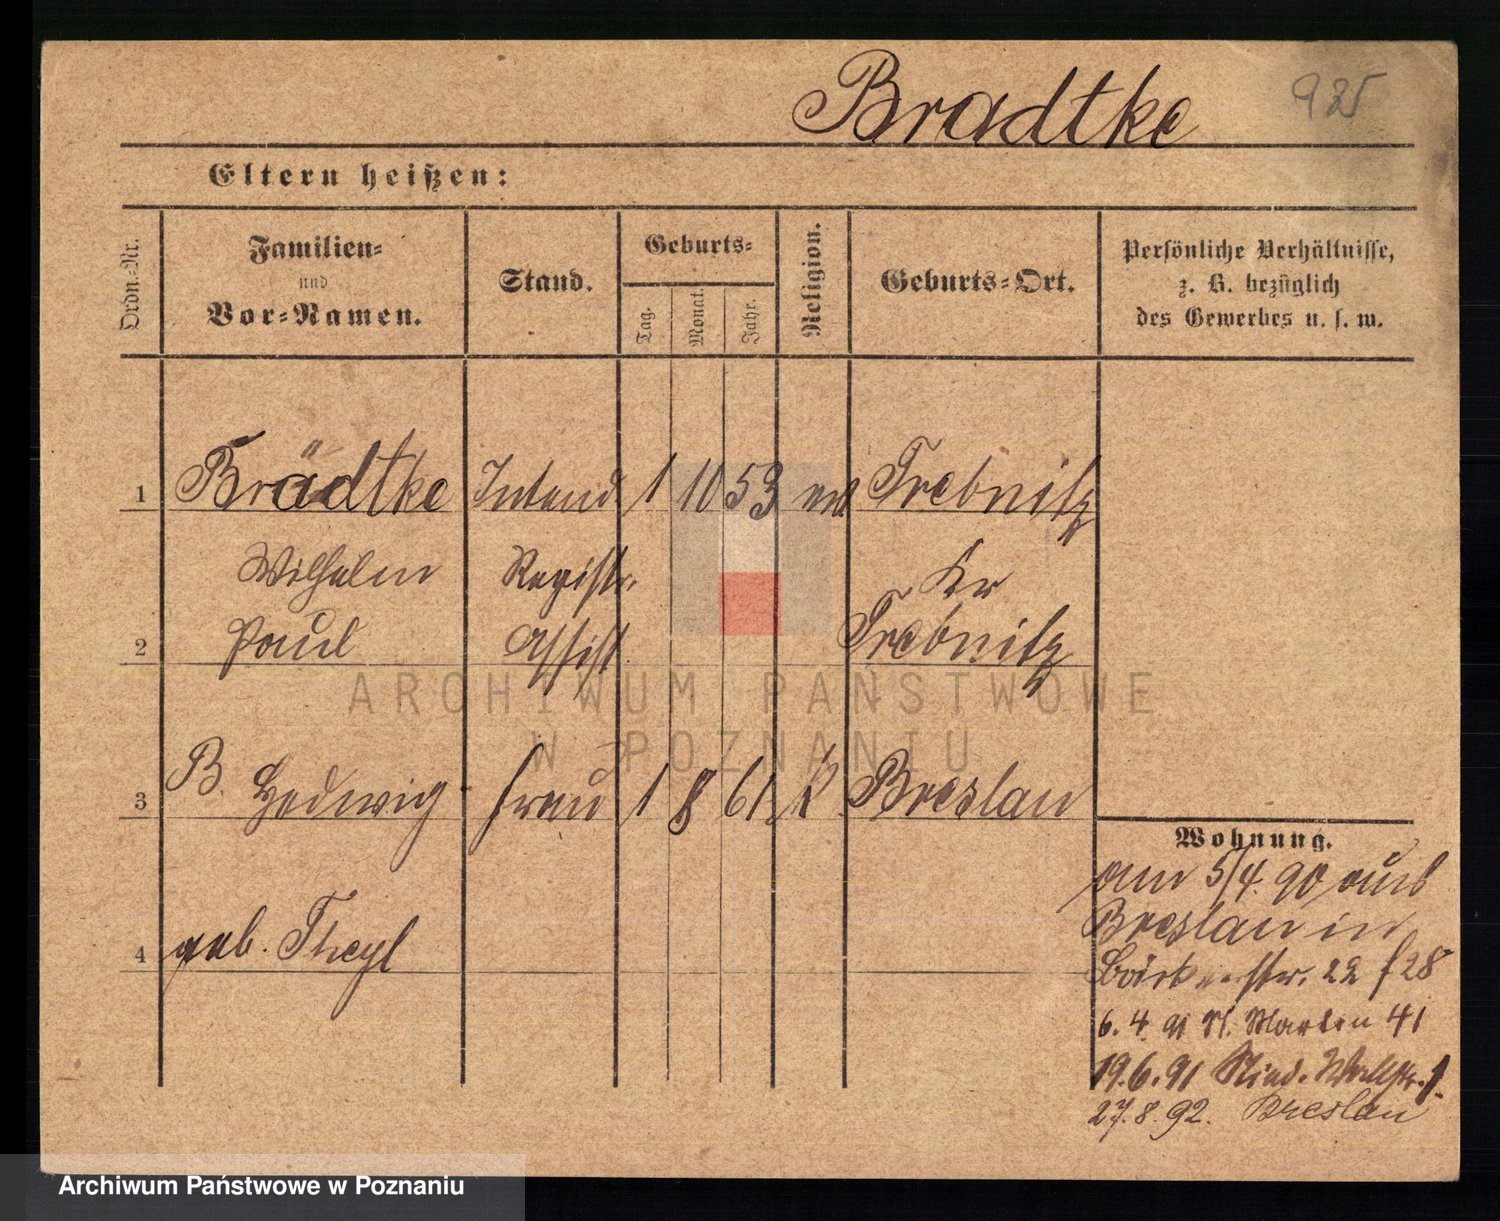 Bradtke 925
Eltern heißen:
Ordn.-Nr.
Familien-
und
Vor-Namen.
Stand.
Geburts-
Tag.
Monat.
Jahr.
Religion.
Geburts-Ort.
Persönliche Verhältnisse,
z. B. bezüglich
des Gewerbes u. s. w.
1 Brädtke Intend 1 10 53 ev Trebnitz
Wilhelm Registr. Kr
2 Paul Assist. Trebnitz
3 B. Hedwig Frau 1 8 61. k. Breslau
4 geb. Theyl
Wohnung.
am 5/4. 90 aus
Breslau in
22 f 28
6. 4. 91 St. Martin 41
19.6.91 Wallstr. 1.
27.8.92. Breslau
ARCHIWUM PAŃSTWOWE
W POZNANIU
Archiwum Państwowe w Poznaniu